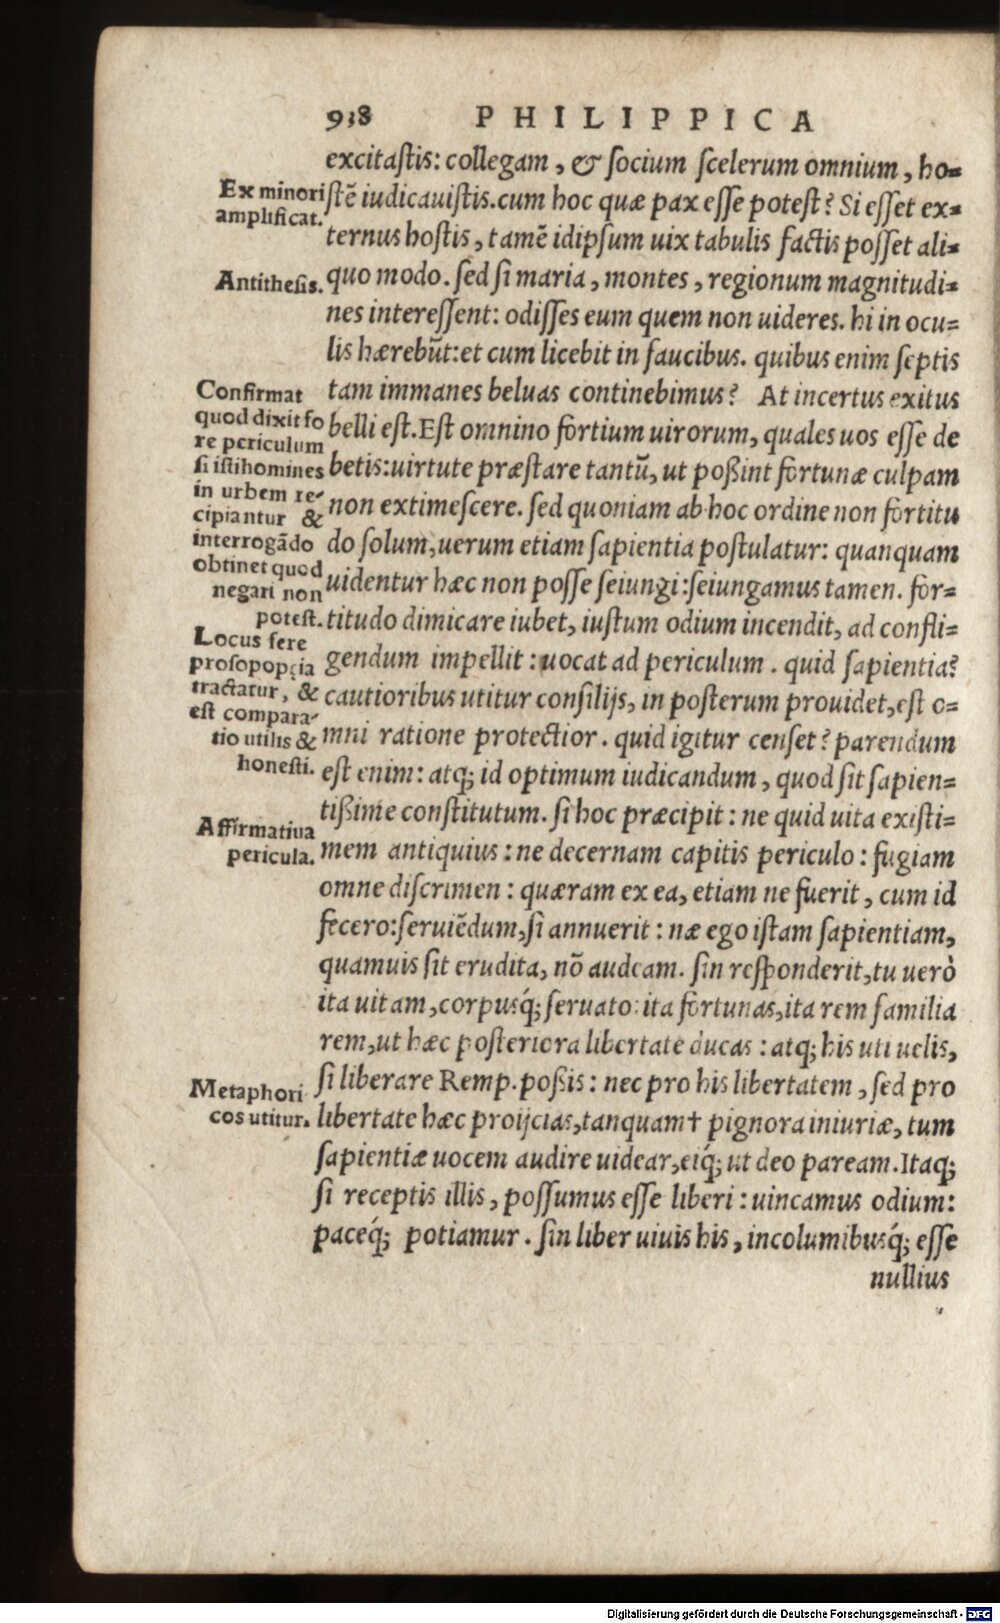 938 PHILIPPICA
excitaſtis: collegam, & ſocium ſcelerum omnium, ho=
Ex minori
amplificat.
ſtē iudicauiſtis. cum hoc quæ pax eſſe poteſt? Si eſſet ex=
ternus hoſtis, tamē idipſum uix tabulis factis poſſet ali=
Antitheſis.
quo modo. ſed ſi maria, montes, regionum magnitudi=
nes intereſſent: odiſſes eum quem non uideres. hi in ocu=
lis hærebūt: et cum licebit in faucibus. quibus enim ſeptis
tam immanes beluas continebimus? At incertus exitus
belli eſt. Eſt omnino fortium uirorum, quales uos eſſe de
betis: uirtute præſtare tantū, ut poßint fortunæ culpam
non extimeſcere. ſed quoniam ab hoc ordine non fortitu
do ſolum, uerum etiam ſapientia poſtulatur: quanquam
uidentur hæc non poſſe ſeiungi: ſeiungamus tamen. for=
titudo dimicare iubet, iuſtum odium incendit, ad confli=
Confirmat
quod dixit fo
re periculum
ſi iſti homines
in urbem re=
cipiantur &
interrogādo
obtinet quod
negari non
poteſt.
Locus fere
proſopopęia
tractatur, &
eſt compara=
tio utilis &
honeſti.
gendum impellit: uocat ad periculum. quid ſapientia?
cautioribus utitur conſilijs, in poſterum prouidet, eſt o=
mni ratione protectior. quid igitur cenſet? parendum
eſt enim: atq; id optimum iudicandum, quod ſit ſapien=
tißime conſtitutum. ſi hoc præcipit: ne quid uita exiſti=
Affirmatiua
pericula.
mem antiquius: ne decernam capitis periculo: fugiam
omne diſcrimen: quæram ex ea, etiam ne fuerit, cum id
fecero: ſeruiēdum, ſi annuerit: næ ego iſtam ſapientiam,
quamuis ſit erudita, nō audeam. ſin reſponderit, tu uerò
ita uitam, corpusq́; ſeruato: ita fortunas, ita rem familia
rem, ut hæc poſteriora libertate ducas: atq; his uti uelis,
ſi liberare Remp. poßis: nec pro his libertatem, ſed pro
Metaphori
cos utitur.
libertate hæc proijcias, tanquam† pignora iniuriæ, tum
ſapientiæ uocem audire uidear, eiq́; ut deo paream. Itaq;
ſi receptis illis, poſſumus eſſe liberi: uincamus odium:
paceq́; potiamur. ſin liber uiuis his, incolumibusq́; eſſe
nullius
Digitalisierung gefördert durch die Deutsche Forschungsgemeinschaft - DFG